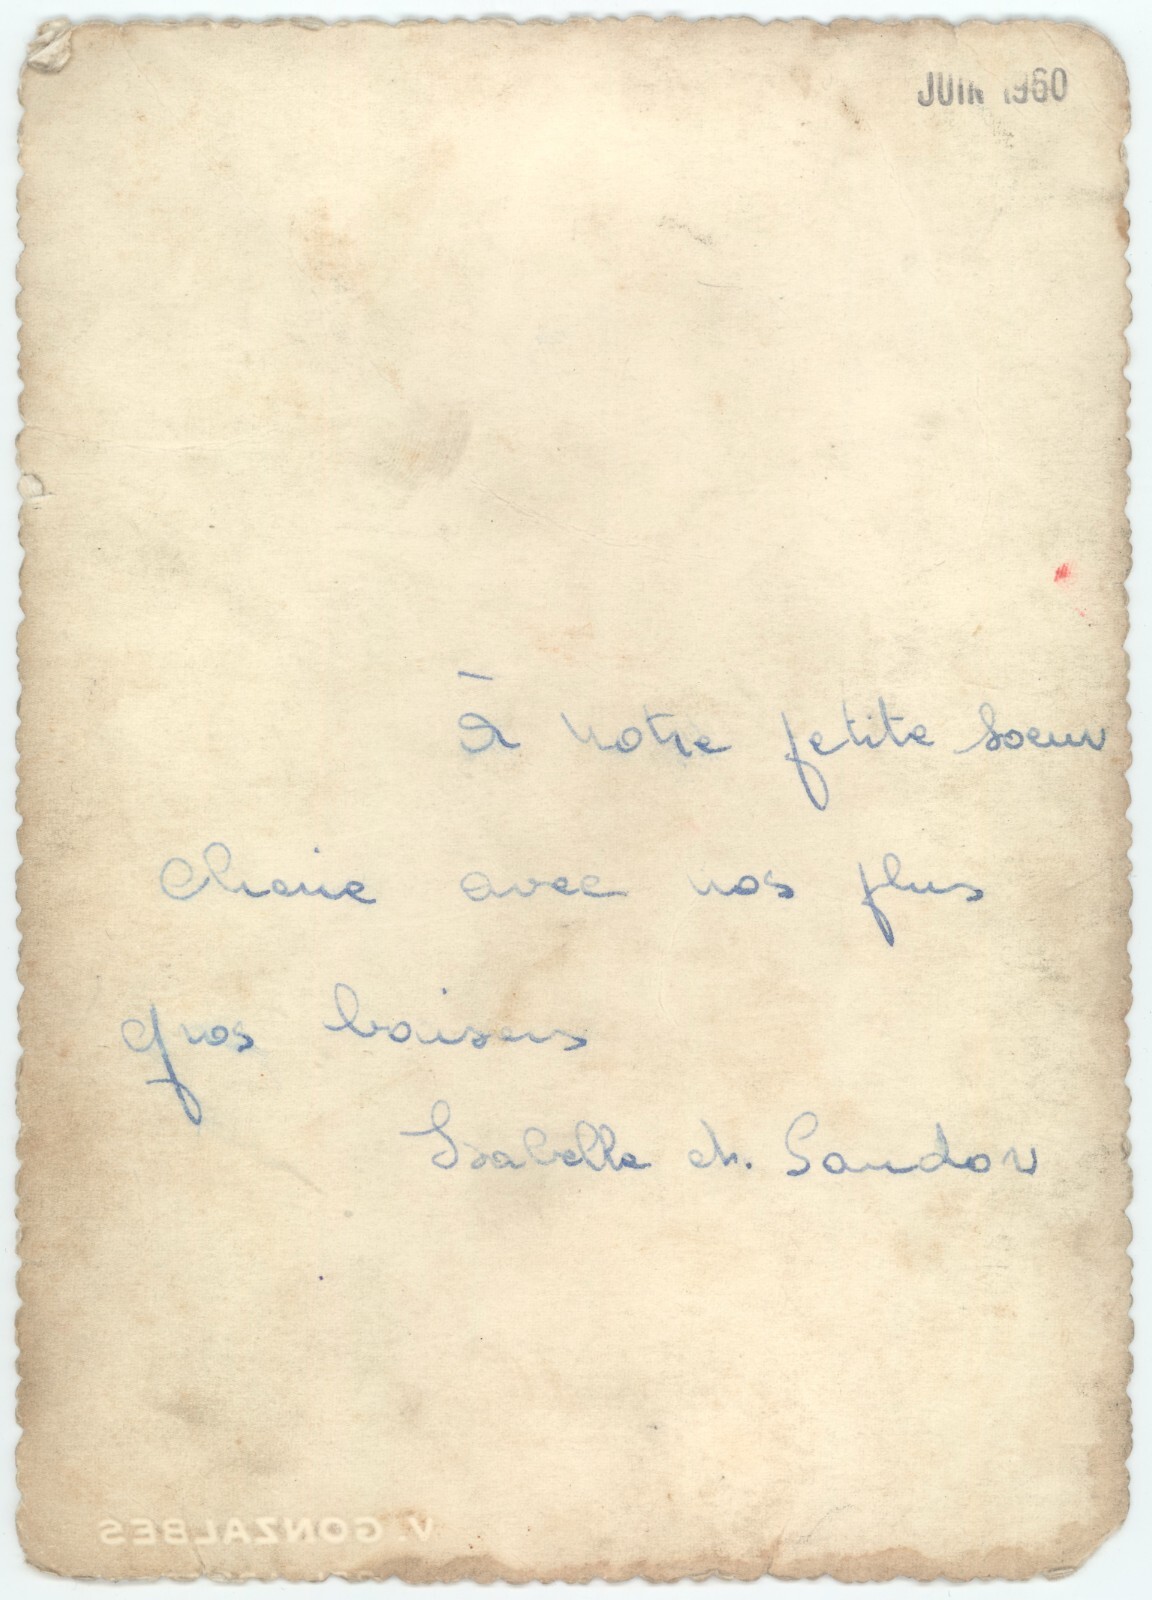 JUIN 1960
À notre petite soeur
cherie avec nos plus
gros baisers
Isabelle et. Sandov
V. GONZALBES